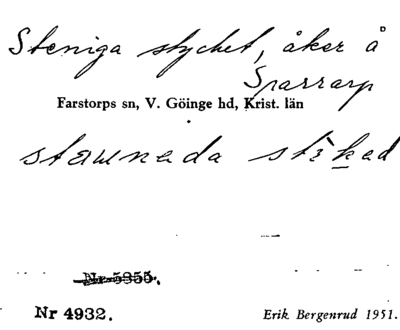 Steniga stycket, åker å
Sparrarp
Farstorps sn, V. Göinge hd, Krist. län
Nr 5355.
Nr 4932.
Erik Bergenrud 1951.